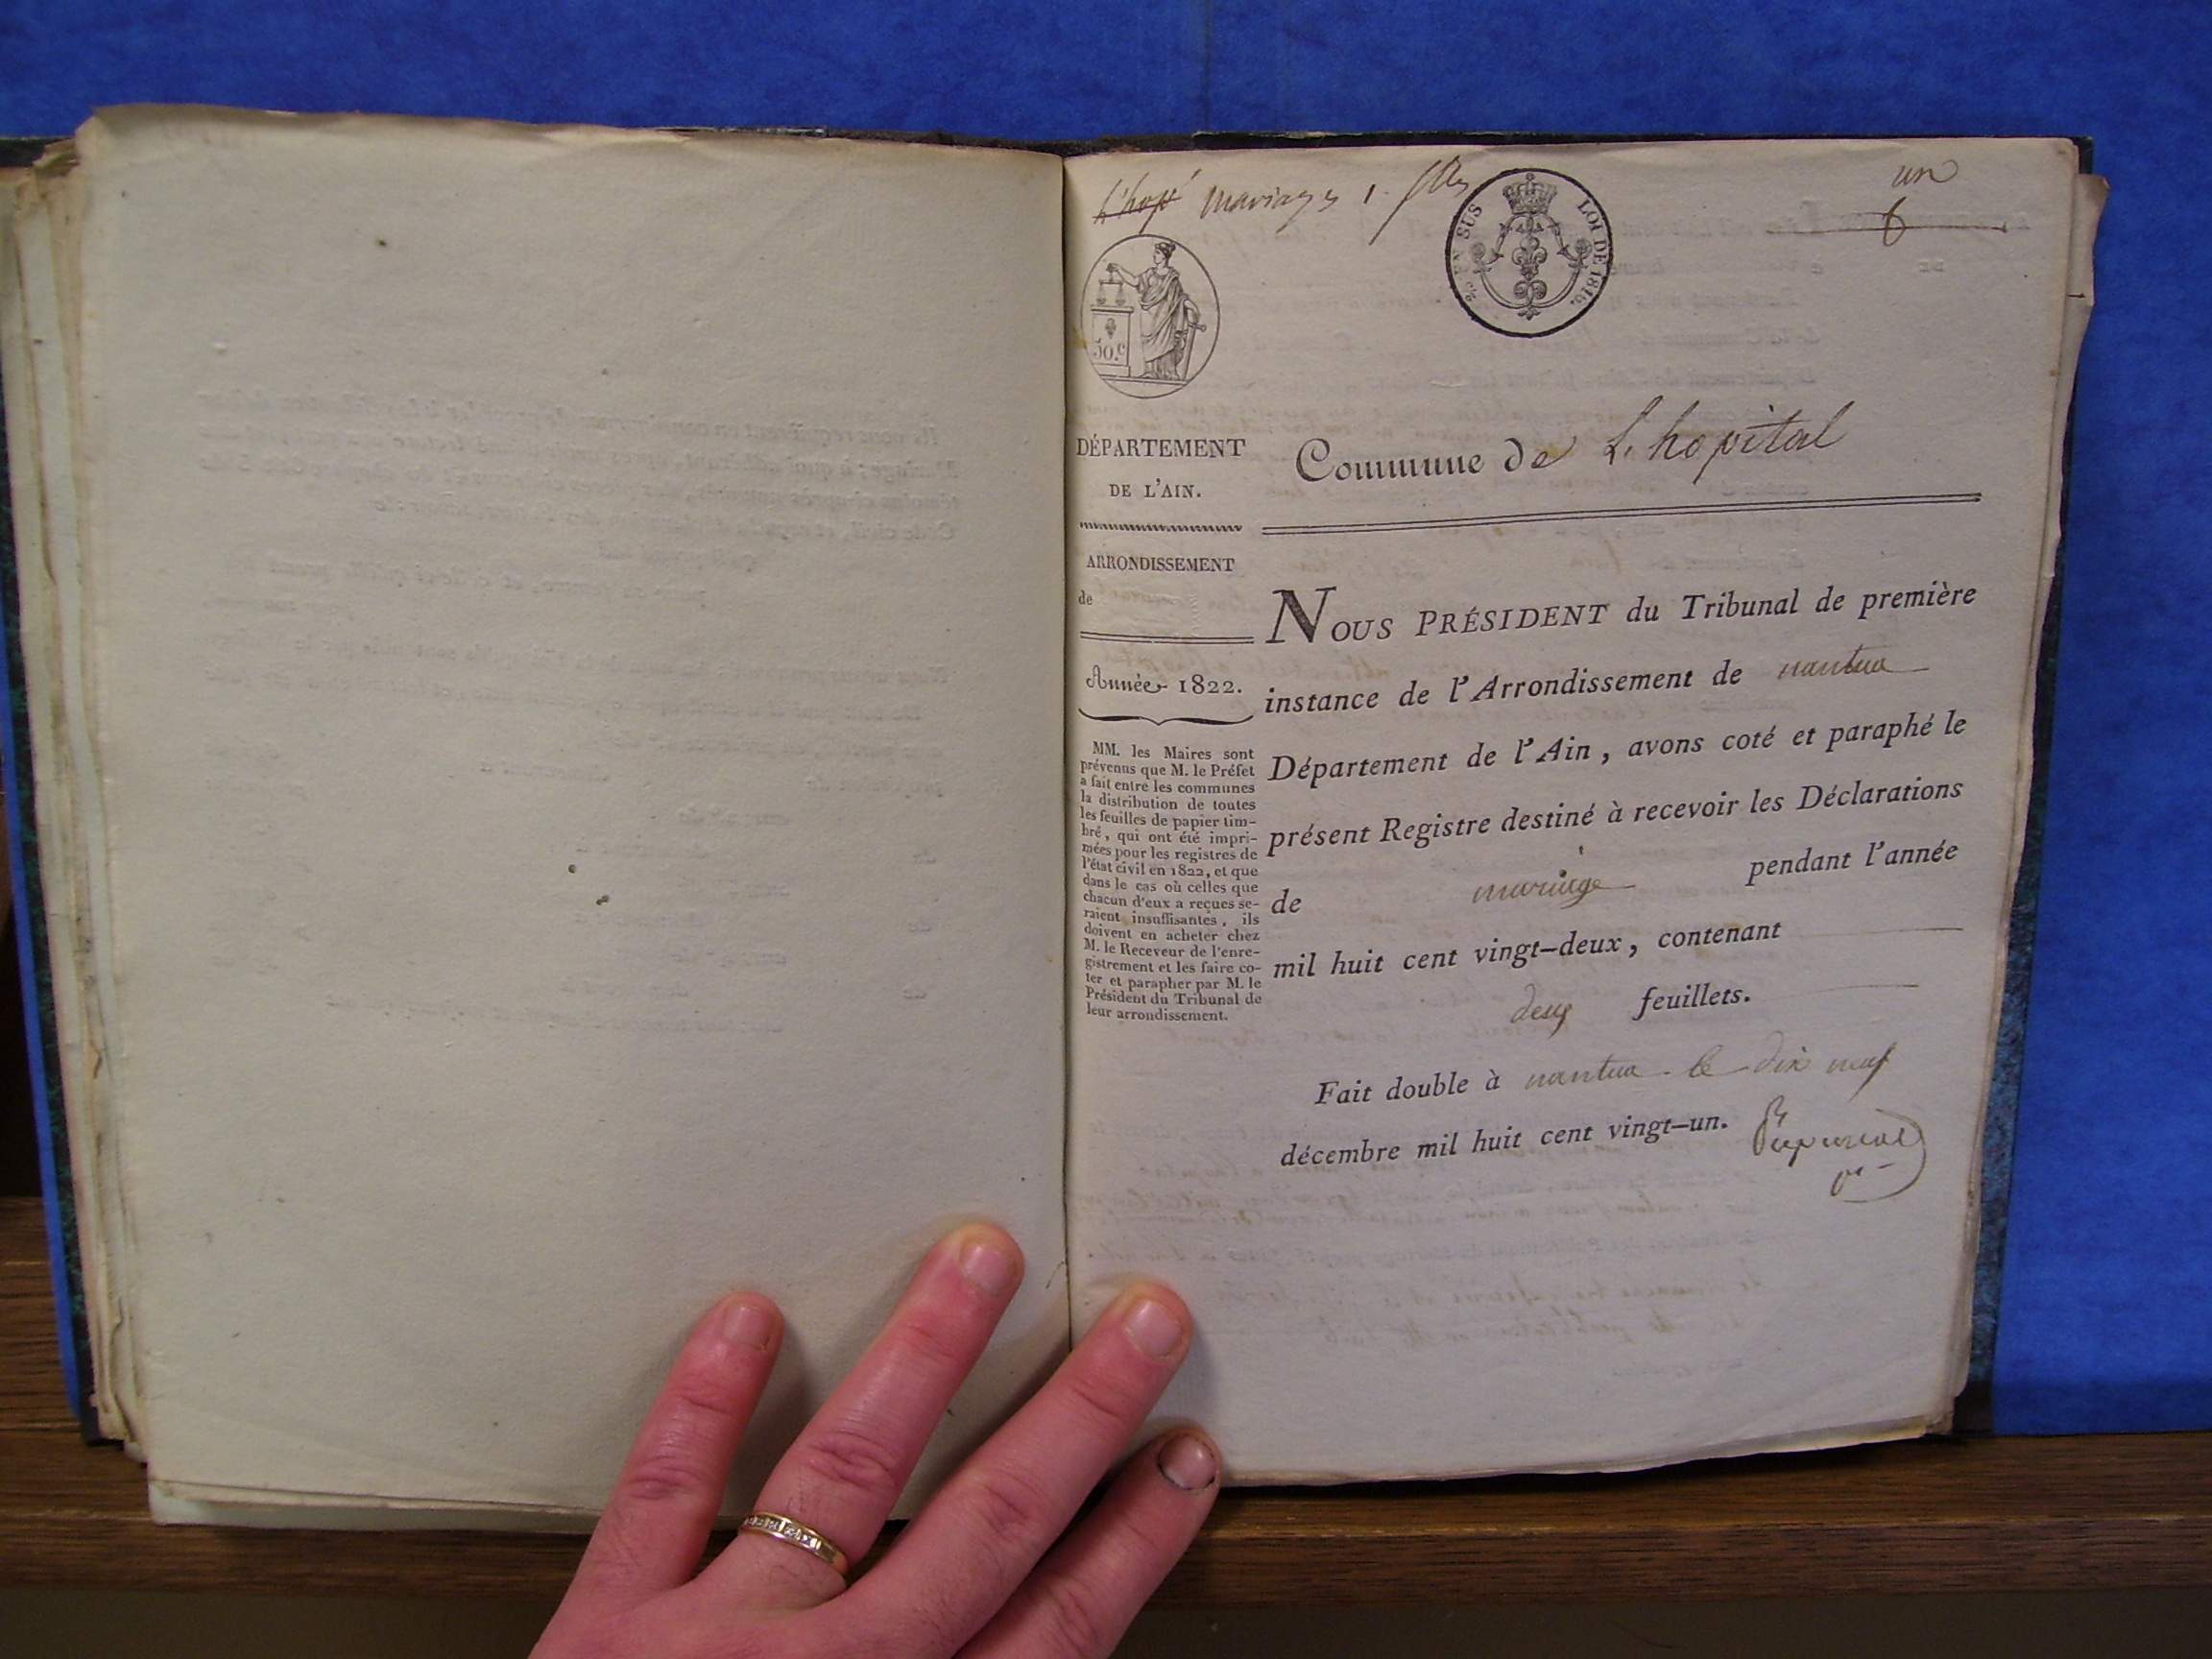 L'hopl mariages 1.
un
6
EN SUS LOI DE 1816.
50.c
DÉPARTEMENT
DE L'AIN.
ARRONDISSEMENT
de
Année 1822.
MM. les Maires sont
prévenus que M. le Préfet
a fait entre les communes
la distribution de toutes
les feuilles de papier tim-
bré, qui ont été impri-
mées pour les registres de
l'état civil en 1822, et que
dans le cas où celles que
chacun d'eux a reçues se-
raient insuffisantes, ils
doivent en acheter chez
M. le Receveur de l'enre-
gistrement et les faire co-
ter et parapher par M. le
Président du Tribunal de
leur arrondissement.
Commune de L'hopital
NOUS PRÉSIDENT du Tribunal de première
instance de l'Arrondissement de nantua
Département de l'Ain, avons coté et paraphé le
présent Registre destiné à recevoir les Déclarations
de mariage pendant l'année
mil huit cent vingt-deux, contenant
deux feuillets.
Fait double à nantua le dix neuf
décembre mil huit cent vingt-un.